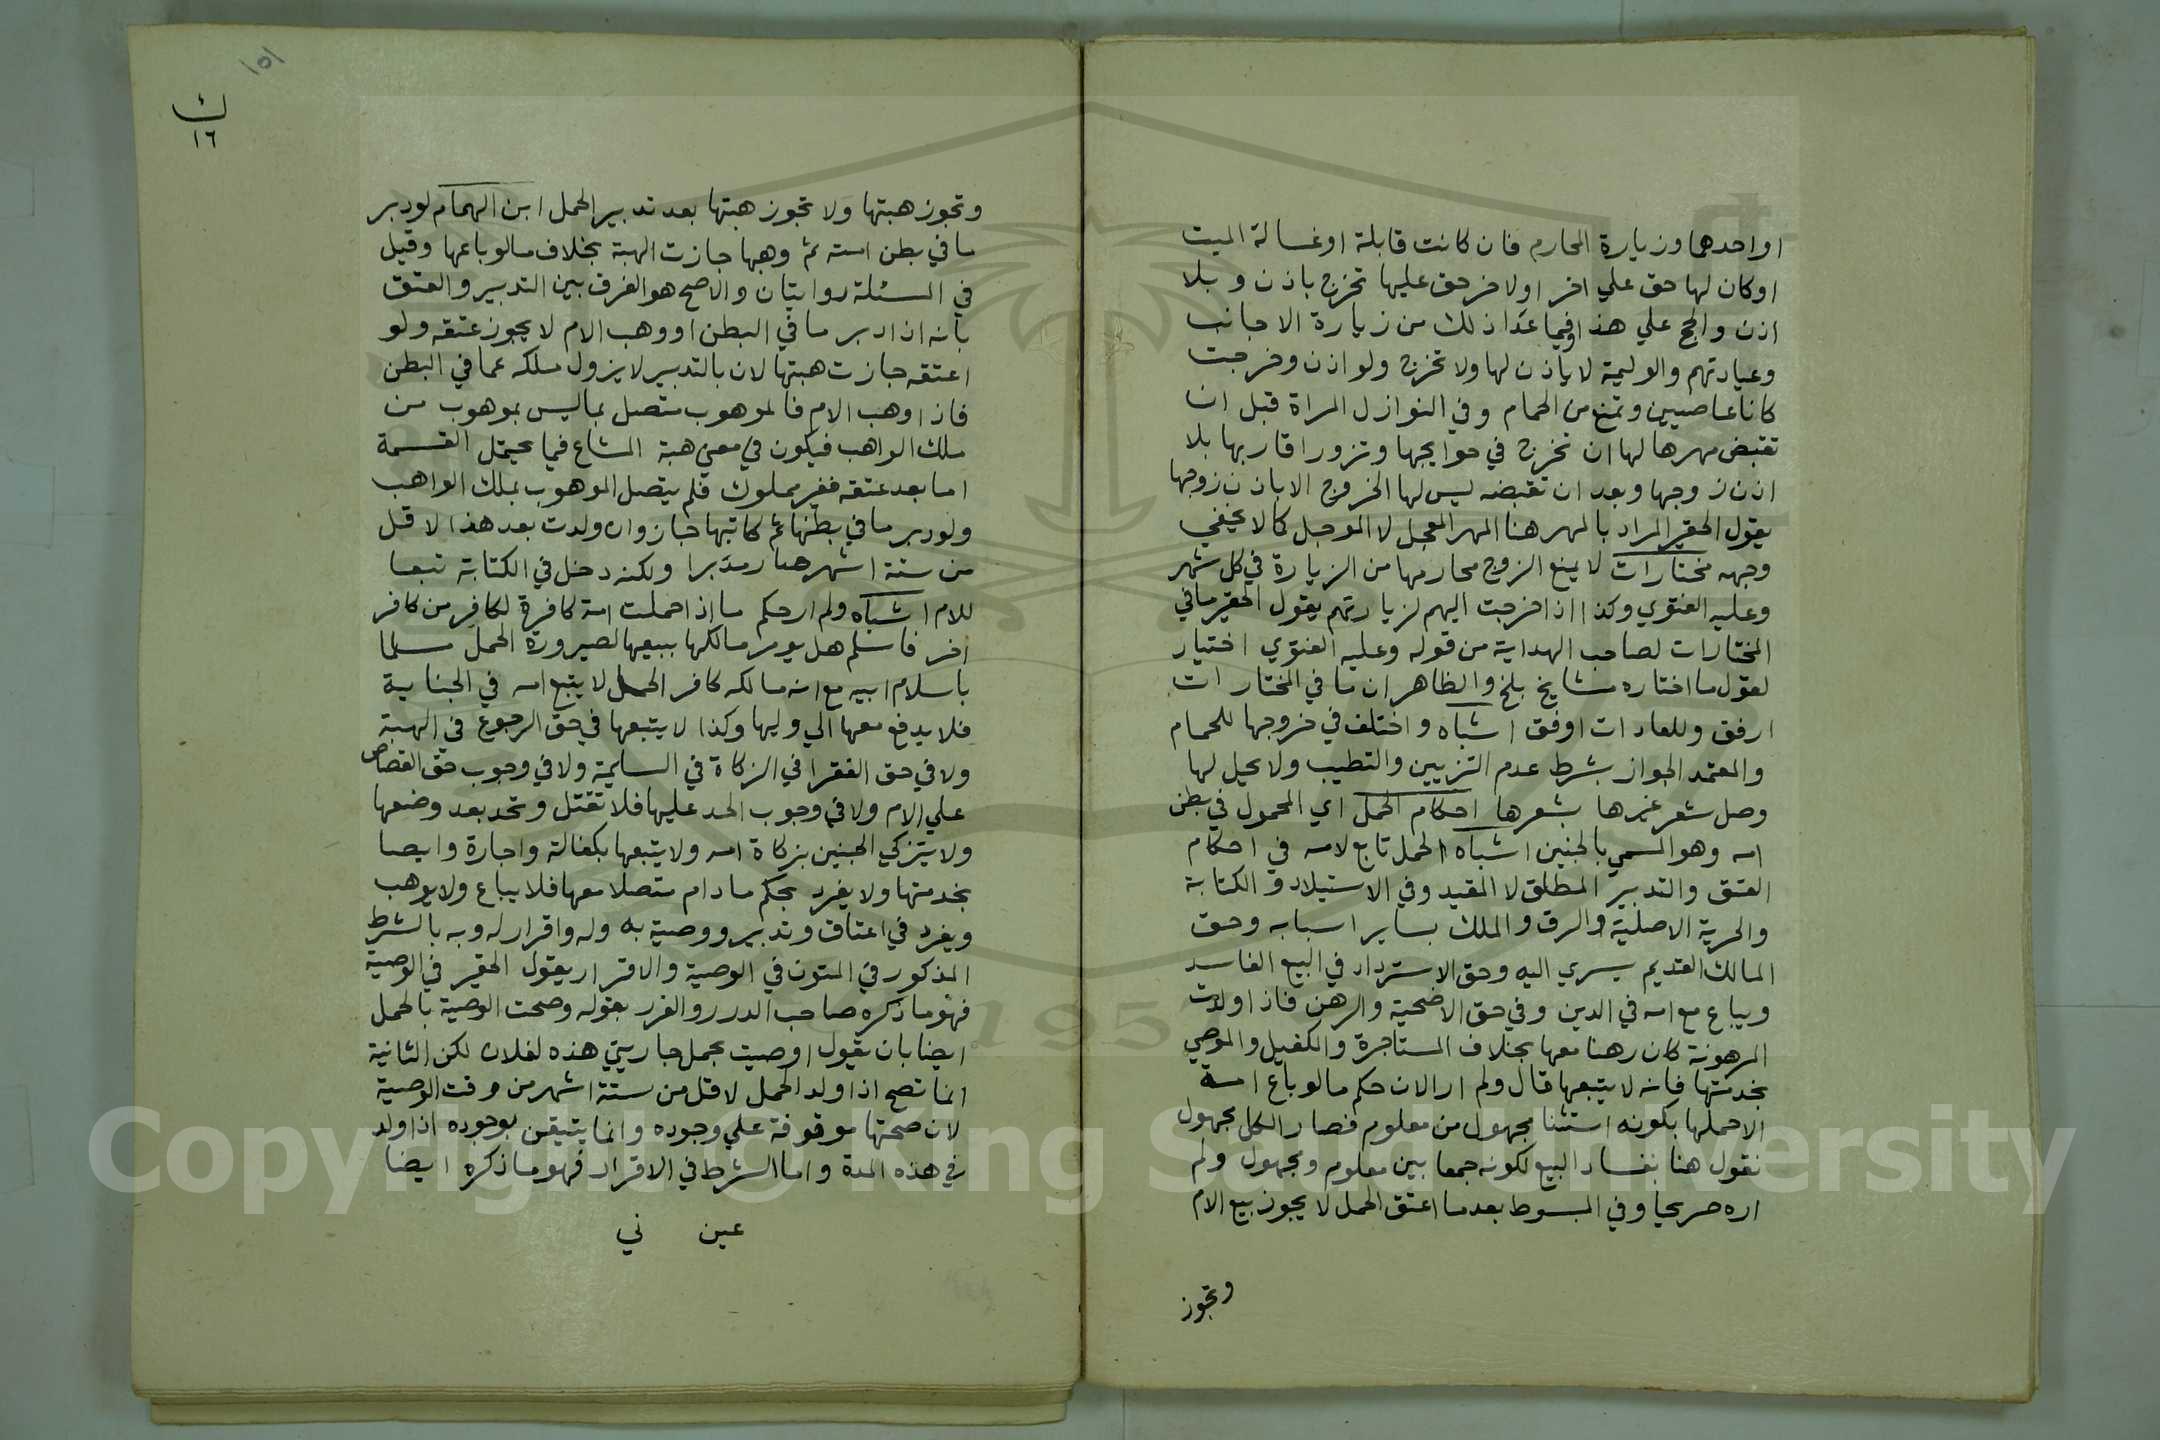 او احدهما وزيارة المحارم فان كانت قابلة او غسالة الميت
او كان لها حق علي اخر او لاخر حق عليها تخرج باذن وبلا
اذن والحج علي هذا وفيما عدا ذلك من زيارة الاجانب
وعيادتهم والوليمة لا ياذن لها ولا تخرج ولو اذن وخرجت
كانا عاصيين وتمنع من الحمام وفي النوازل المراة قبل ان
تقبض مهرها لها ان تخرج في حوايجها وتزور اقاربها بلا
اذن زوجها وبعد ان تقبضه ليس لها الخروج الا باذن زوجها
يقول الحقير المراد بالمهر هنا المهر المعجل لا الموجل كما لا يخفي
وجهه مختارات لا يمنع الزوج محارمها من الزيارة في كل شهر
وعليه الفتوي وكذا اذا خرجت اليهم لزيارتهم يقول الحقير ما في
المختارات لصاحب الهداية من قوله وعليه الفتوي اختيار
لقول ما اختاره مشايخ بلخ والظاهر ان ما في المختارات
ارفق وللعادات اوفق اشباه واختلف في خروجها للحمام
والمعتمد الجواز بشرط عدم التزيين والتطيب ولا يحل لها
وصل شعر غيرها بشعرها احكام الحمل اي المحمول في بطن
امه وهو المسمي بالجنين اشباه الحمل تابع لامه في احكام
العتق والتدبير المطلق لا المقيد وفي الاستيلاد والكتابة
والحرية الاصلية والرق والملك بساير اسبابه وحق
المالك القديم يسري اليه وحق الاسترداد في البيع الفاسد
ويباع مع امه في الدين وفي حق الاضحية والرهن فاذا ولدت
المرهونة كان رهنا معها بخلاف المستاجرة والكفيل والموصي
بخدمتها فانه لا يتبعها قال ولم ار الان حكم ما لو باع امة
الا حملها بكونه استثنا مجهول من معلوم فصار الكل مجهول
نقول هنا بفساد البيع لكونه جمعا بين معلوم ومجهول ولم
اره صريحا وفي المبسوط بعد ما اعتق الحمل لا يجوز بيع الام
وتجوز
١٥١
ك
١٦
وتجوز هبتها ولا تجوز هبتها بعد تدبير الحمل ابن الهمام لو دبر
ما في بطن امته ثم وهبها جازت الهبة بخلاف ما لو باعها وقيل
في المسئلة روايتان والاصح هو الفرق بين التدبير والعتق
بانه ان ادبر ما في البطن او وهب الام لا يجوز عتقه ولو
اعتقه جازت هبتها لان بالتدبير لا يزول ملكه عما في البطن
فاذا وهب الام فالموهوب متصل بما ليس بموهوب من
ملك الواهب فيكون في معني هبة المشاع فيما يحتمل القسمة
اما بعد عتقه فغير مملوك فلم يتصل الموهوب بملك الواهب
ولو دبر ما في بطنها ثم كاتبها جاز وان ولدت بعد هذا الاقل
من ستة اشهر صار مدبرا ولكنه دخل في الكتابة تبعا
للام اشباه ولم ار حكم ما اذا حملت امة كافرة لكافر من كافر
اخر فاسلم هل يومر مالكها ببيعها لصيرورة الحمل مسلما
باسلام ابيه مع انه مالكه كافر الحمل لا يتبع امه في الجناية
فلا يدفع معها الي وليها وكذا لا يتبعها في حق الرجوع في الهبة
ولا في حق الفقرا في الزكاة في السايمة ولا في وجوب حق القصاص
علي الام ولا في وجوب الحد عليها فلا تقتل وتحد بعد وضعها
ولا يتزكي الجنين بزكاة امه ولا يتبعها بكفالة واجارة وايصا
بخدمتها ولا يفرد بحكم ما دام متصلا معها فلا يباع ولا يوهب
ويفرد في اعتاق وتدبير ووصية به وله واقرار له وبه بالشرط
المذكور في المتون في الوصية والاقرار يقول الحقير في الوصية
فهو ما ذكره صاحب الدرر والغرر بقوله وصحت الوصية بالحمل
ايضا بان يقول اوصيت بحمل جاريتي هذه لفلان لكن الثانية
انما تصح اذا ولد الحمل لاقل من ستة اشهر من وقت الوصية
لان صحتها موقوفة علي وجوده وانما يتيقن بوجوده اذا ولد
في هذه المدة واما الشرط في الاقرار فهو ما ذكره ايضا
عين ني
Copyright © King Saud University
195